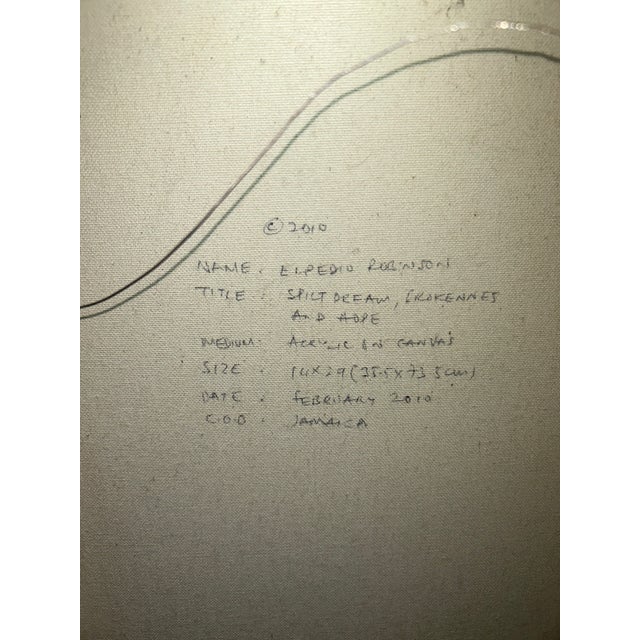 © 2010
NAME. ELPEDIO ROBINSON
TITLE: SPILT DREAM, BROKENNES
AND HOPE
MEDIUM: ACRYLIC ON CANVAS
SIZE: 14 X 29 (35.5 X 73.5 cm)
DATE: FEBRUARY 2010
C.O.O: JAMAICA